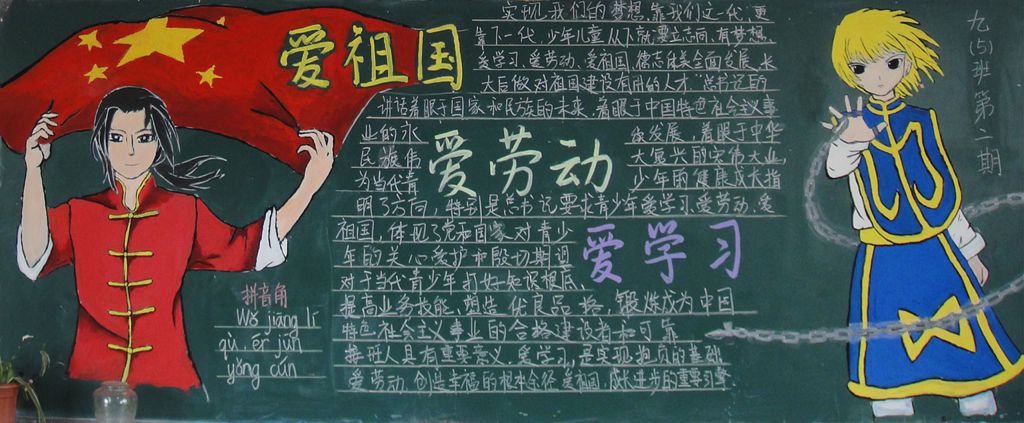 爱祖国
实现我们的梦想,靠我们这一代,更
靠下一代。少年儿童从小就要立志向、有梦想,
爱学习、爱劳动、爱祖国,德智体美全面发展,长
大后做对祖国建设有用的人才。总书记的
讲话着眼于国家和民族的未来,着眼于中国特色社会主义事
业的永 续发展,着眼于中华
民族伟 大复兴的宏伟大业,
为当代青 少年的健康成长指
爱劳动
明了方向,特别是总书记要求青少年爱学习、爱劳动、爱
祖国,体现了党和国家对青少
年的关心爱护和殷切期望
爱学习
对于当代青少年打好知识根底,
提高业务技能,塑造优良品格,锻炼成为中国
特色社会主义事业的合格建设者和可靠
接班人具有重要意义。爱学习,是实现抱负的基础
爱劳动,创造幸福的根本途径 爱祖国,成长进步的重要引擎
拼音角
Wǒ jiāng lí
qù, ěr jūn
yǒng cún
九(5)班第二期